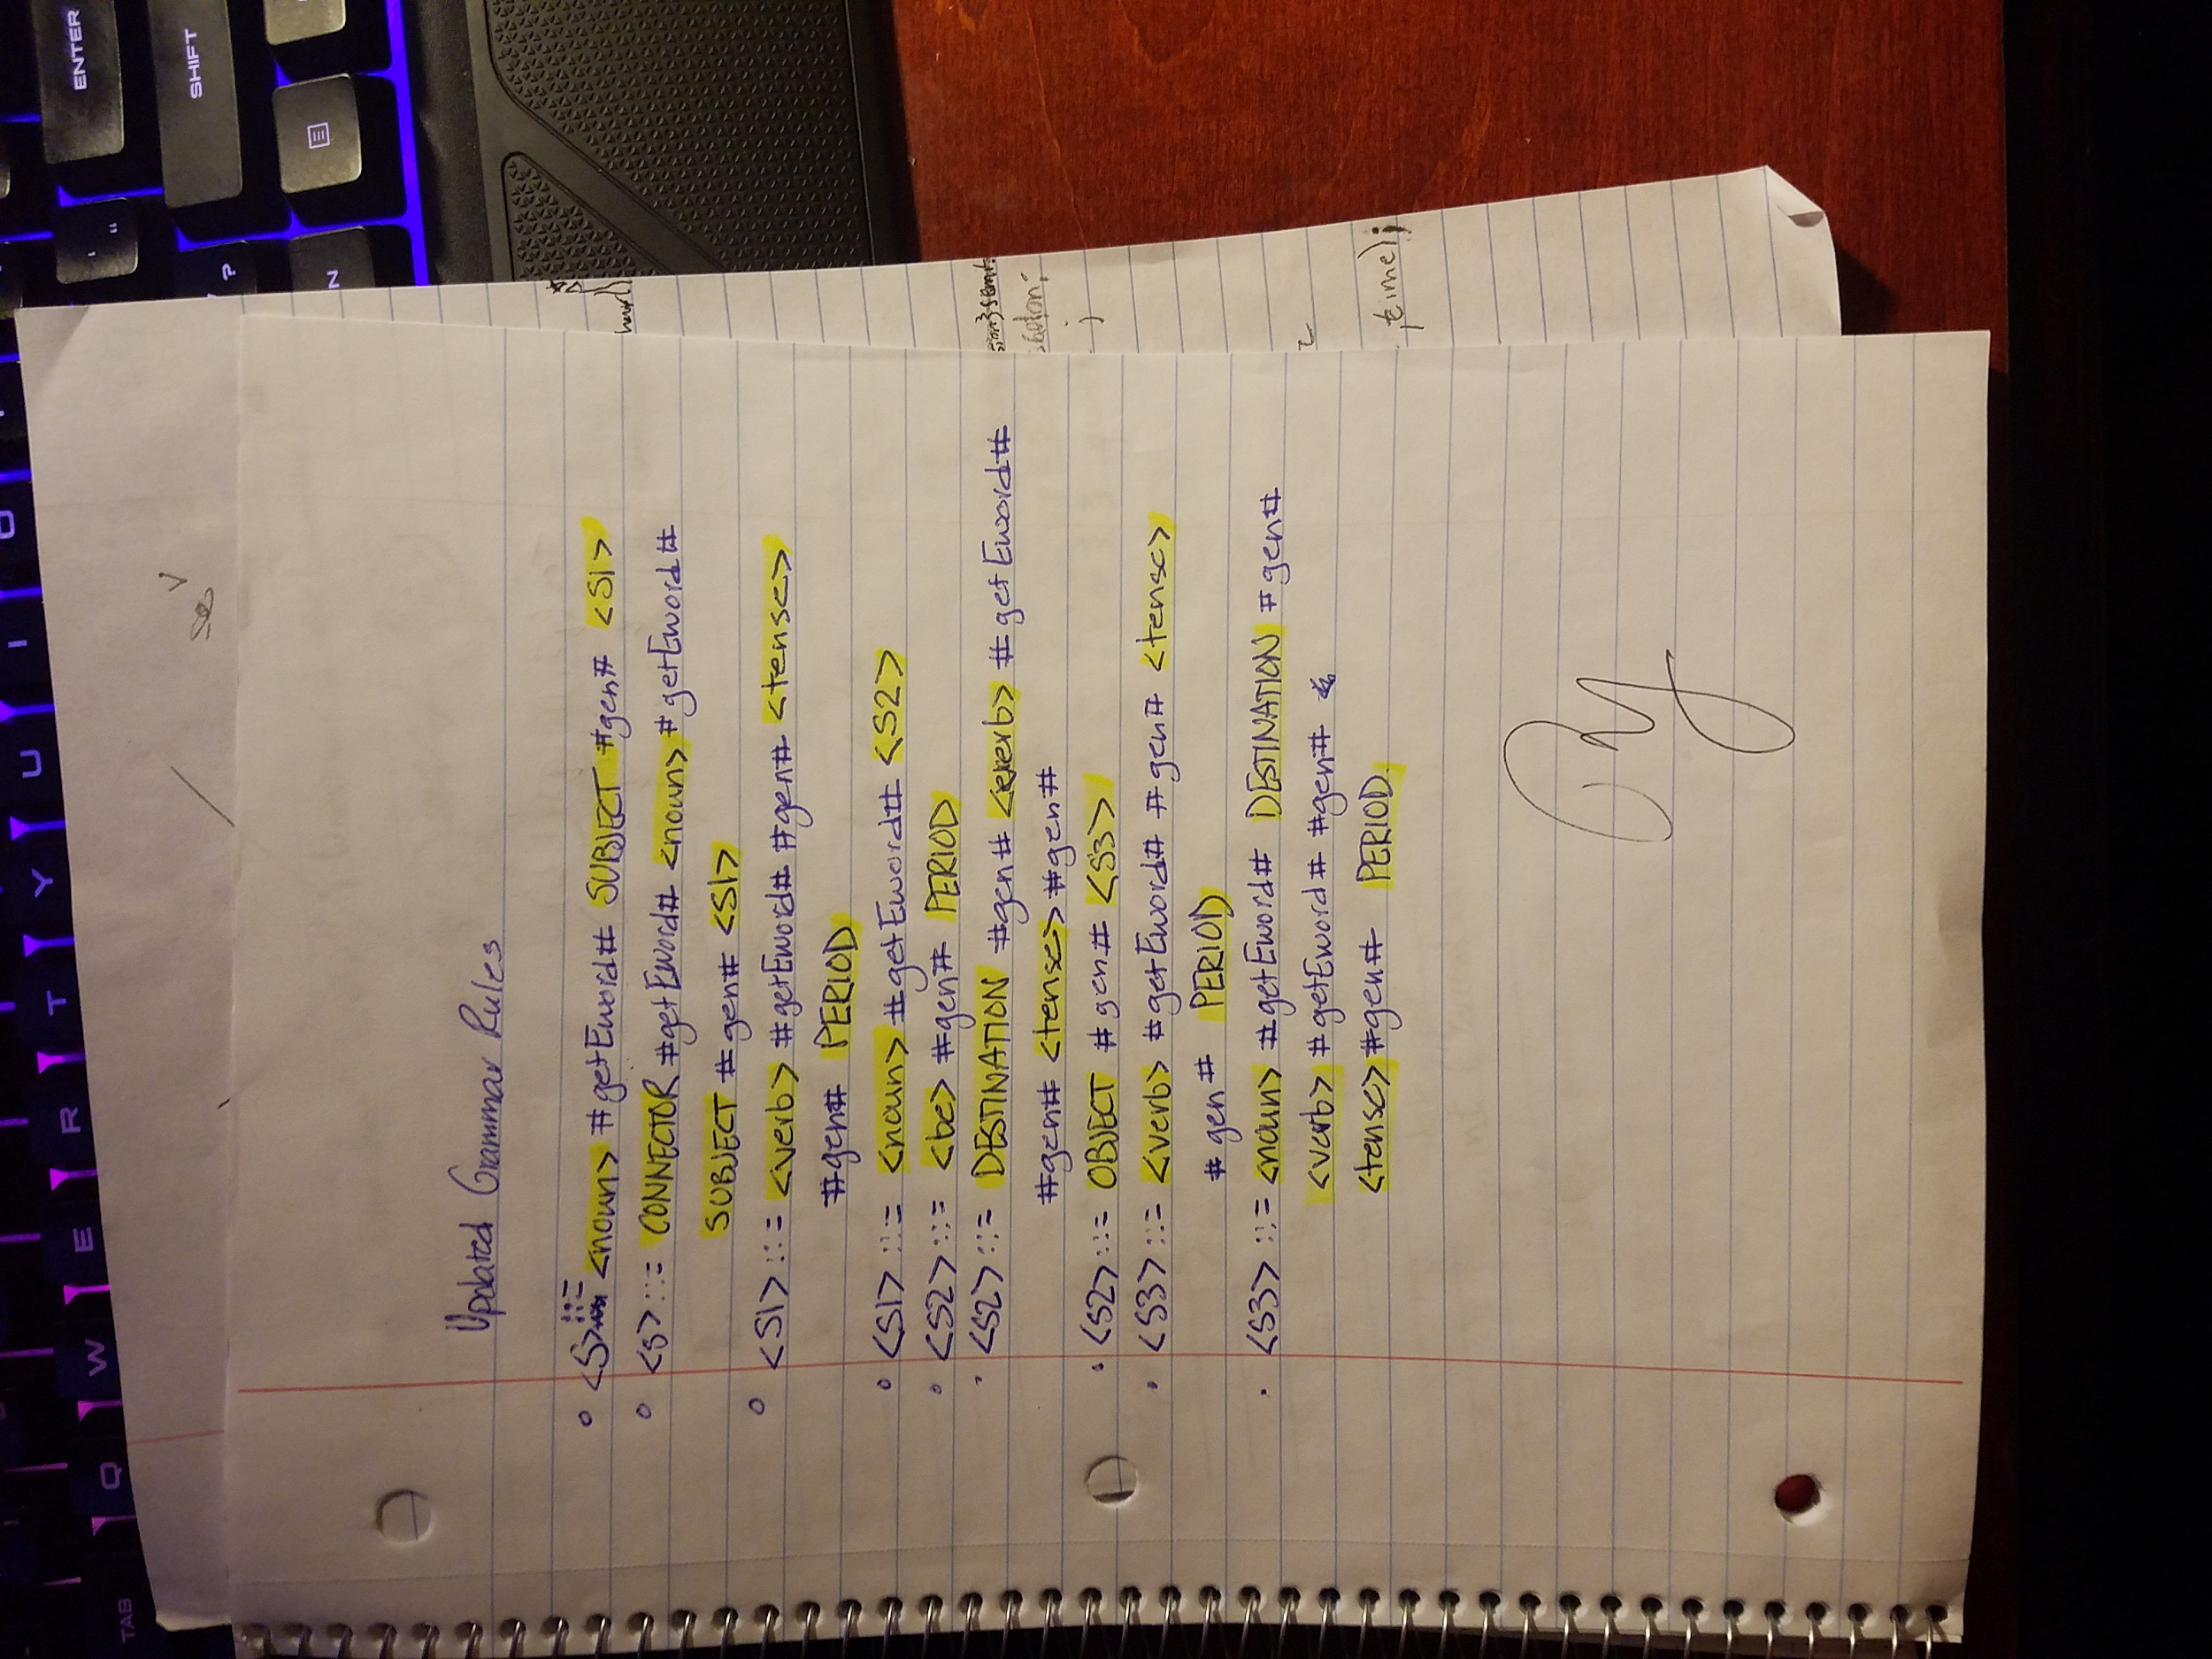 Updated Grammar Rules
<S> ::= <noun> #getEword# SUBJECT #gen# <S1>
<S> ::= CONNECTOR #getEword# <noun> #getEword#
SUBJECT #gen# <S1>
<S1> ::= <verb> #getEword# #gen# <tense>
#gen# PERIOD
<S1> ::= <noun> #getEword# <S2>
<S2> ::= <be> #gen# PERIOD
<S2> ::= DESTINATION #gen# <verb> #getEword#
#gen# <tense> #gen#
<S2> ::= OBJECT #gen# <S3>
<S3> ::= <verb> #getEword# #gen# <tense>
#gen# PERIOD
<S3> ::= <noun> #getEword# DESTINATION #gen#
<verb> #getEword# #gen#
<tense> #gen# PERIOD
time);
ENTER
SHIFT
" '
?
N
TAB
Q
W
E
R
T
Y
U
I
O